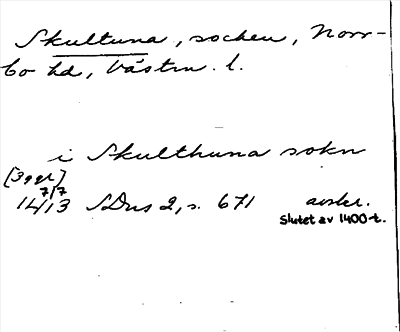 Skultuna, socken, Norr-
bo hd, Västm. l.
i Skulthuna sokn
[3 ggr]
7/7
1413 SDns 2, s. 671 avskr.
Slutet av 1400-t.